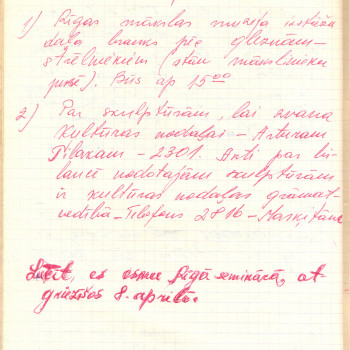 1) Rīgas mākslas muzeja izstāžu
daļa brauks pēc gleznām –
strēlniekiem (stāv mākslinieku
). Būs ap 15⁰⁰
2) Par skulptūrām, lai zvana
Kultūras nodaļai – Arturam
Pīlakam – 2301. Arī par bi-
lancē nodotajām skulptūrām
ir kultūras nodaļas grāmat-
vedībā – Telefons 2816 –
Lūdzu, es esmu Rīgā seminārā, at-
griezīšos 8. aprīlī.